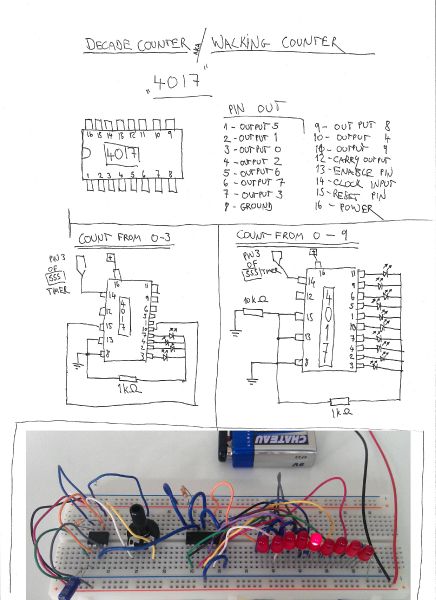 DECADE COUNTER / WALKING COUNTER
"4017"
16 15 14 13 12 11 10 9
4017
1 2 3 4 5 6 7 8
PIN OUT
1 - OUTPUT 5
2 - OUTPUT 1
3 - OUTPUT 0
4 - OUTPUT 2
5 - OUTPUT 6
6 - OUTPUT 7
7 - OUTPUT 3
8 - GROUND
9 - OUT PUT 8
10 - OUTPUT 4
OUTPUT 9
12 - CARRY OUTPUT
13 - ENABLE PIN
14 - CLOCK INPUT
15 - RESET PIN
16 - POWER
COUNT FROM 0-3
PIN 3
OF
555
TIMER
+
16
14
12
15
13
8
4017
11
9
6
5
1
10
7
4
2
3
1kΩ
COUNT FROM 0 - 9
PIN3
OF
555 TIMER
+
16
14
12
15
13
8
4017
11
9
6
5
1
10
7
4
2
3
10kΩ
1kΩ
CHATEAU
9V